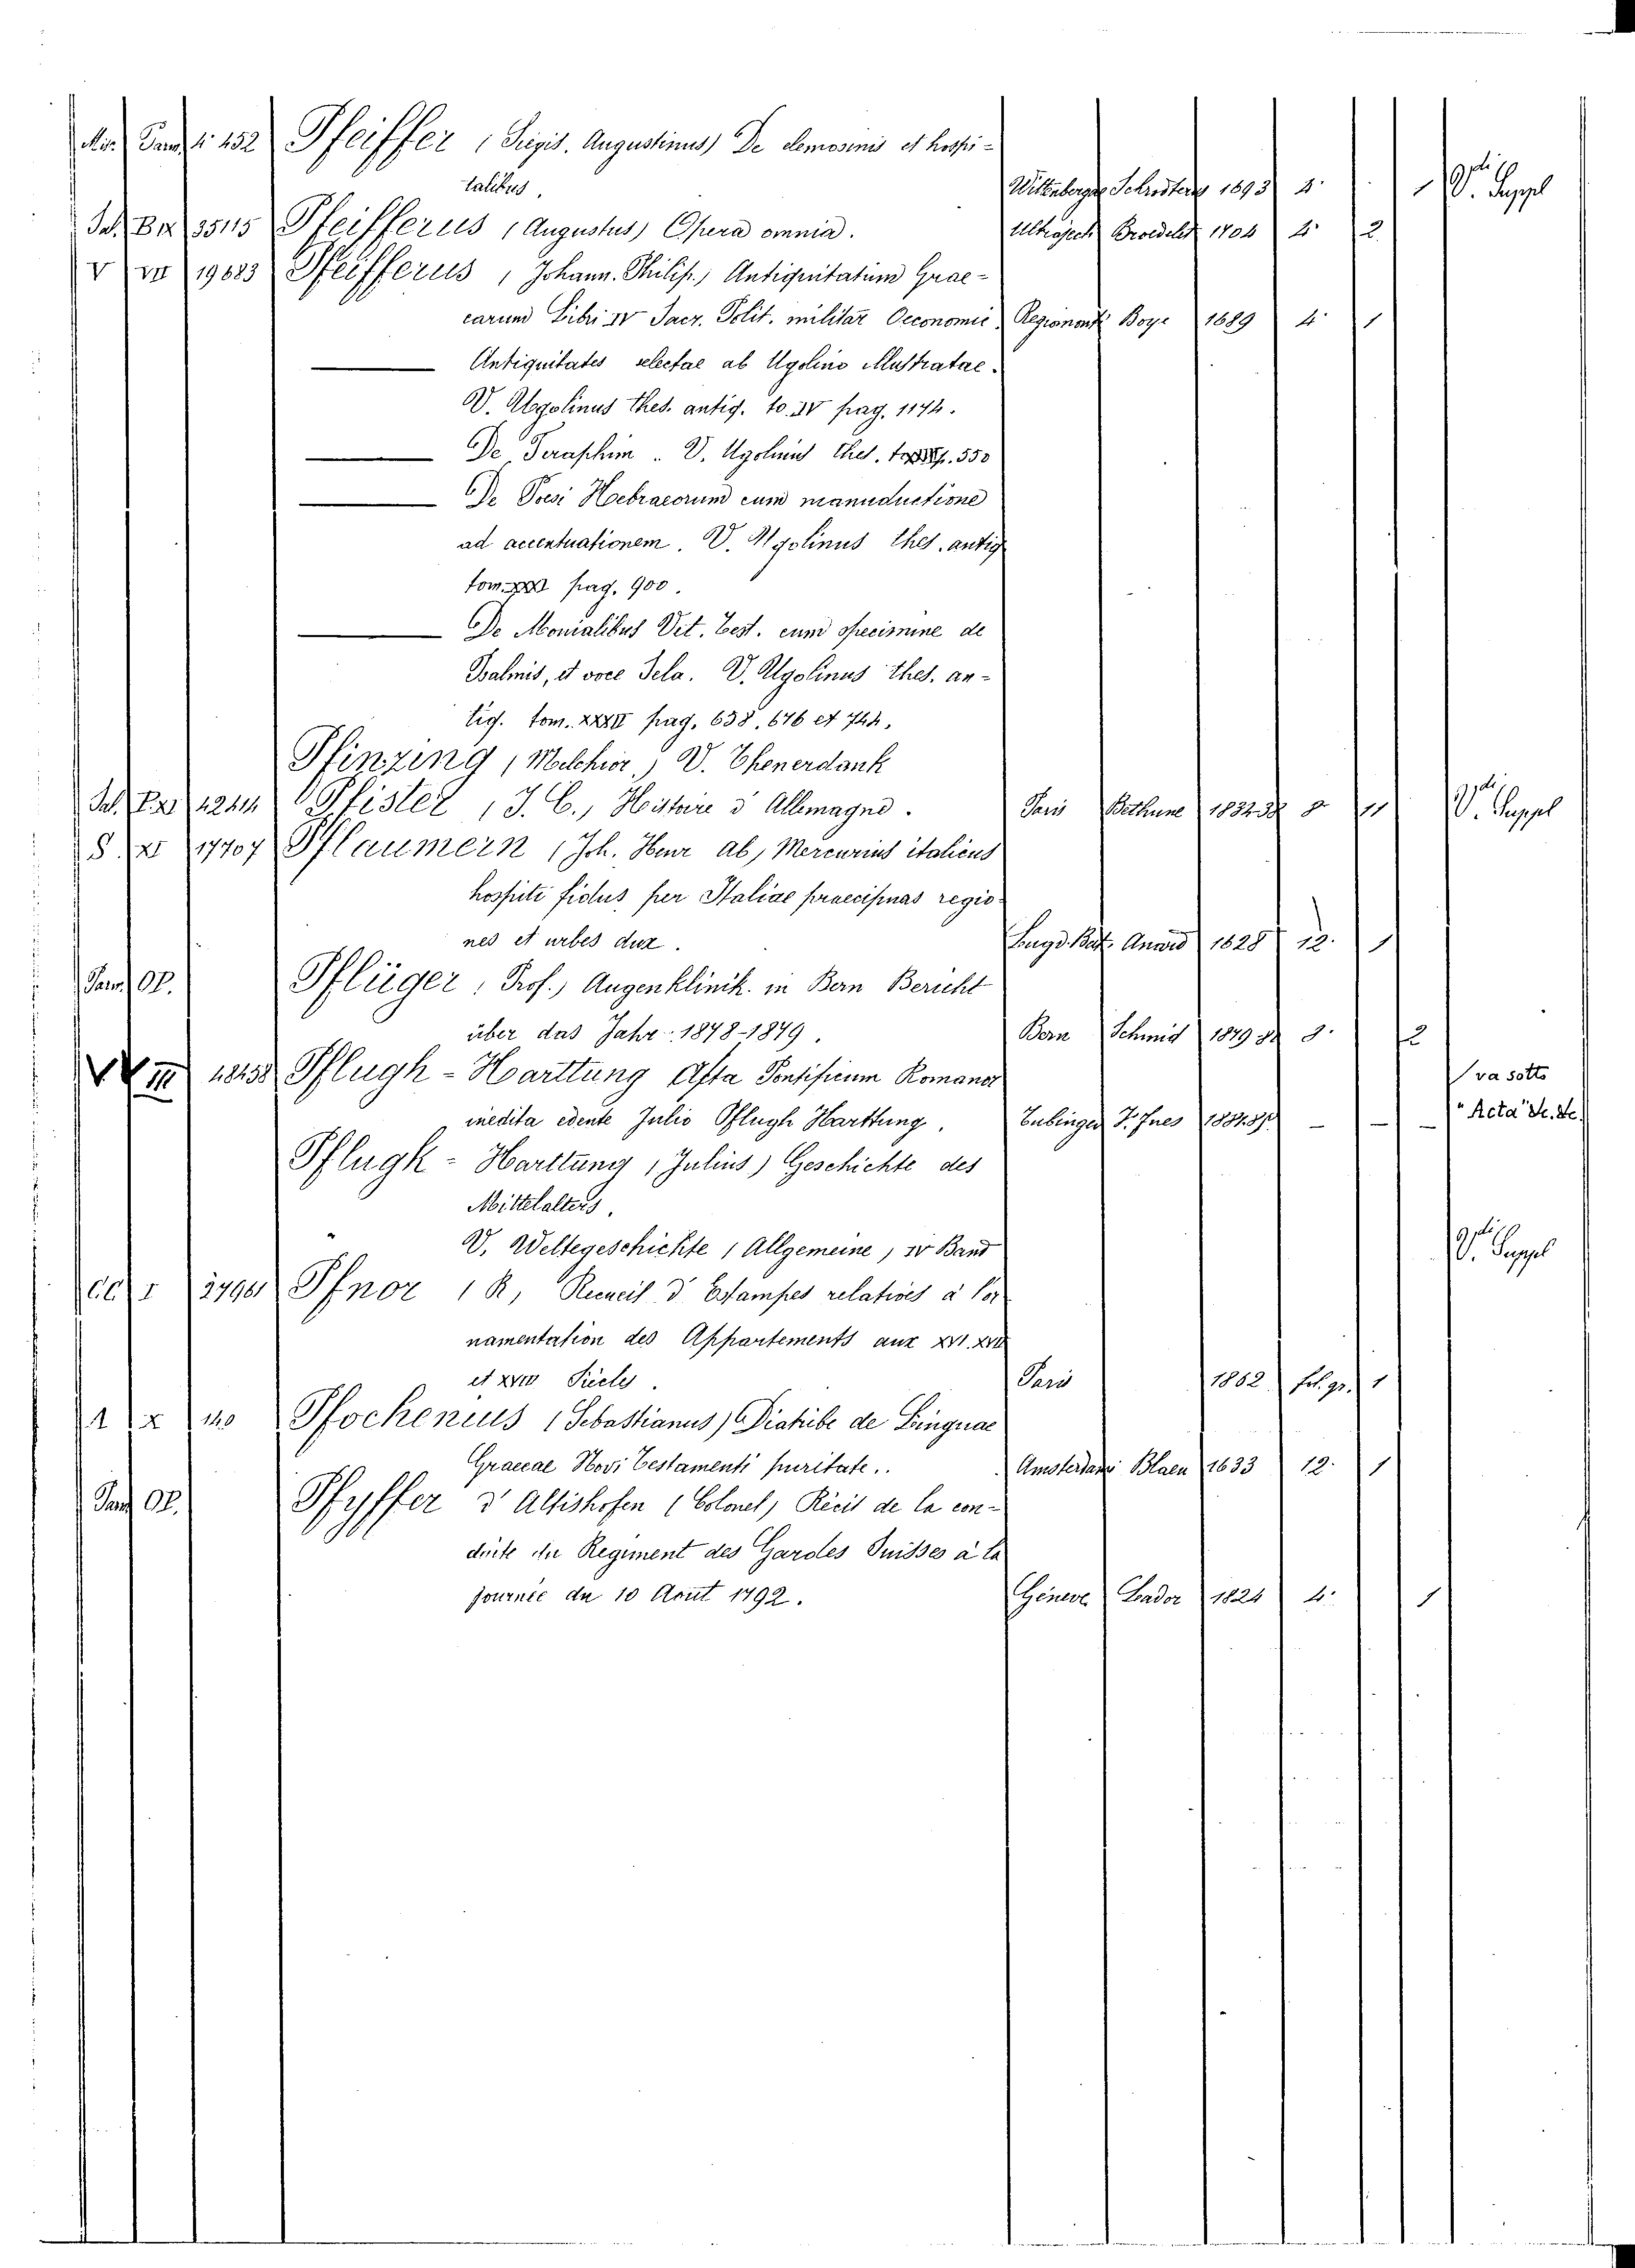 Pfeiffer (Sigis. Augustinus) De elemosinis et hospi-
talibus. Wittenbergae 1693 4. 1 V. Suppl
35115 Pfeifferus (Augustus) Opera omnia. Ultraject. Broedelet 1704 4. 2
V VII 19683 Pfeifferus (Johann. Philip.) Antiquitatum Grae-
carum Libri IV Sacr. Polit. militar Oeconomic. Regiomont. Boye 1689 4. 1
Antiquitates selectae ab Ugolino illustratae.
V. Ugolinus thes. antiq. to. IV pag. 1174.
De Teraphim. V. Ugolinus thes. p. 550
De Poesi Hebraeorum cum manuductione
ad accentuationem. V. Ugolinus thes. antiq
tom. XXXI pag. 900.
De Monialibus Vet. Test. cum specimine de
Psalmis, et voce Sela. V. Ugolinus thes. an-
tiq. tom. XXXII pag. 638. 676 et 744.
Pfinzing (Melchior) V. Thenerdank
Pfister (J. C.) Histoire d'Allemagne. Paris Bethune 1832-38 8 11 V. Suppl
S. XI 17707 Pflaumern (Joh. Henr ab) Mercurius italicus
hospiti fidus per Italiae praecipuas regio-
nes et urbes dux. Lugd. Bat. 1628 12. 1
OP. Pflüger (Prof.) Augenklinik in Bern Bericht
über das Jahr 1878-1879. Bern Schmid 1879 8. 2
III 48458 Pflugh-Harttung Acta Pontificum Romanor
inedita edente Julio Pflugh Harttung. Tubingen F. Fues 1881. - - - va sotto
"Acta" &c. &c.
Pflugk-Harttung (Julius) Geschichte des
Mittelalters.
V. Weltegeschichte (Allgemeine) IV Band V. Suppl
CC I Pfnor (R) Recueil d'Estampes relatives à l'or
namentation des Appartements aux XVI. XVII
et XVIII Siècles. Paris 1862 fol. gr. 1
1 X 140 Pfochenius (Sebastianus) Diatribe de Linguae
Graecae Novi Testamenti puritate.. Amsterdami Blaeu 1633 12. 1
OP. Pfyffer d'Altishofen (Colonel) Récit de la con-
duite du Regiment des Gardes Suisses à la
journée du 10 Aout 1792. Géneve 1824 4. 1